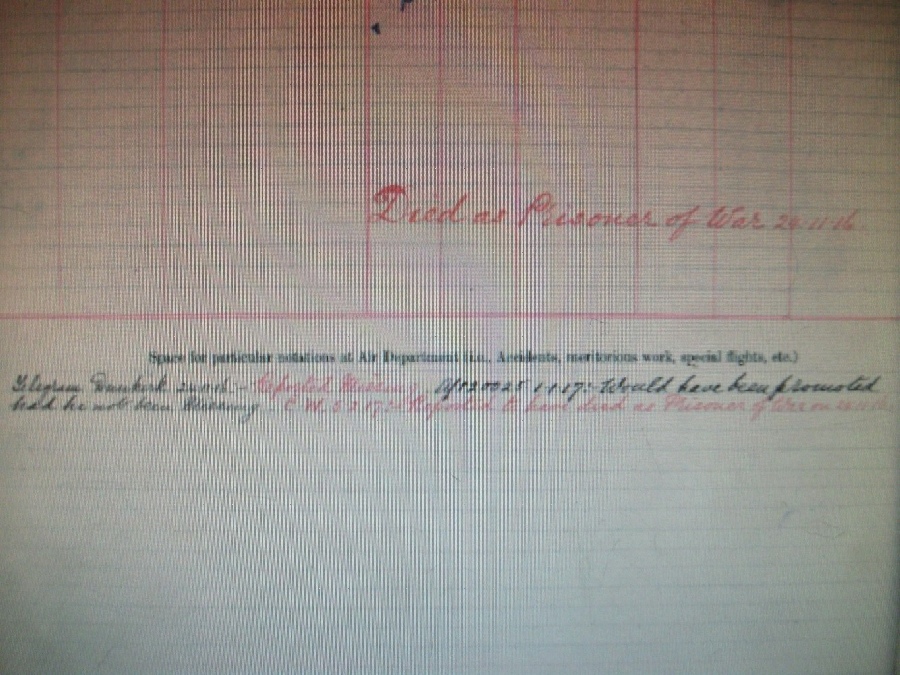 Died as Prisoner of War 24.11.16
Space for particular notations at Air Department (i.e., Accidents, meritorious work, special flights, etc.)
Telegram Dunkirk - Reported Missing. 1.1.17:- Would have been promoted
had he not been Missing. C.W. :- Reported to have died as Prisoner of War on 24.11.16